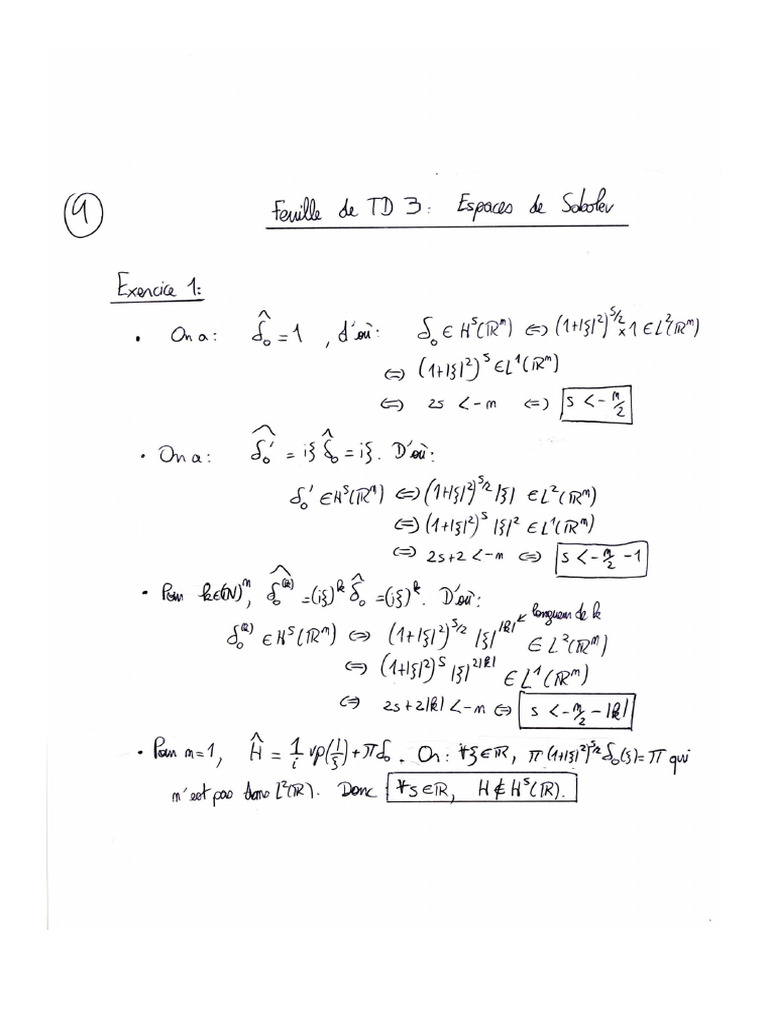 1
Feuille de TD 3: Espaces de Sobolev
Exercice 1:
• On a: δ̂₀ = 1, d'où: δ₀ ∈ Hˢ(ℝⁿ) ⇔ (1+|ξ|²)^{s/2} × 1 ∈ L²(ℝⁿ)
⇔ (1+|ξ|²)ˢ ∈ L¹(ℝⁿ)
⇔ 2s < -n ⇔ s < -n/2
• On a: \widehat{δ₀'} = iξ δ̂₀ = iξ. D'où:
δ₀' ∈ Hˢ(ℝⁿ) ⇔ (1+|ξ|²)^{s/2} |ξ| ∈ L²(ℝⁿ)
⇔ (1+|ξ|²)ˢ |ξ|² ∈ L¹(ℝⁿ)
⇔ 2s+2 < -n ⇔ s < -n/2 - 1
• Pour k∈(ℕ)ⁿ, \widehat{δ₀^{(k)}} = (iξ)ᵏ δ̂₀ = (iξ)ᵏ. D'où:
longueur de k
δ₀^{(k)} ∈ Hˢ(ℝⁿ) ⇔ (1+|ξ|²)^{s/2} |ξ|^{|k|} ∈ L²(ℝⁿ)
⇔ (1+|ξ|²)ˢ |ξ|^{2|k|} ∈ L¹(ℝⁿ)
⇔ 2s+2|k| < -n ⇔ s < -n/2 - |k|
• Pour n=1, Ĥ = 1/i vp(1/ξ) + πδ₀. Or: ∀ξ∈ℝ, π(1+|ξ|²)^{s/2} δ₀(ξ) = π qui
n'est pas dans L²(ℝ). Donc ∀s∈ℝ, H ∉ Hˢ(ℝ).